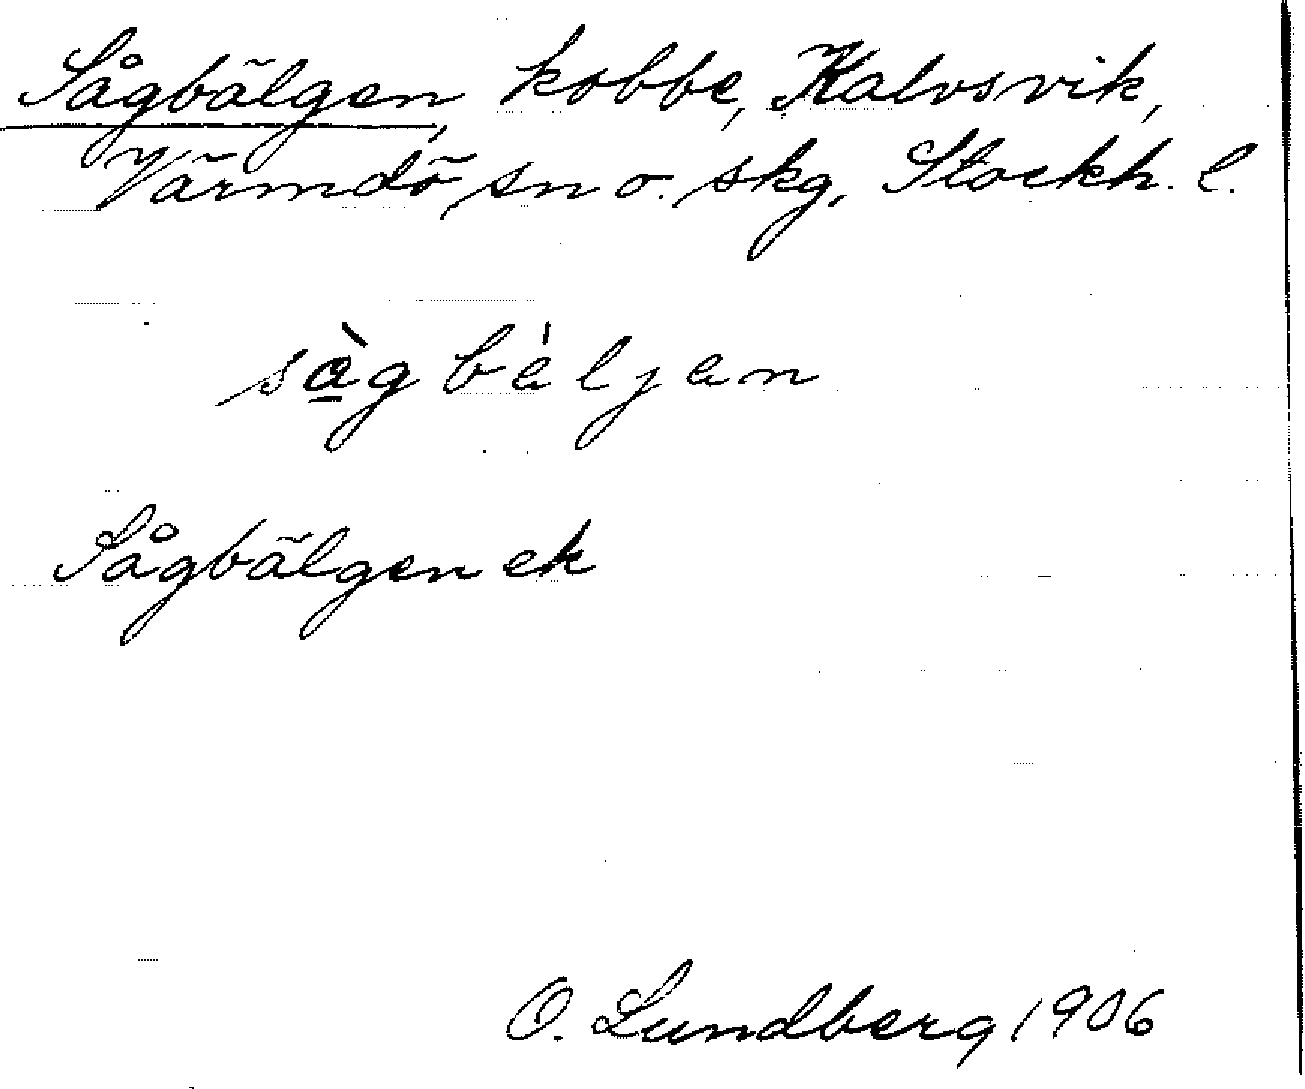 Sågbälgen, kobbe, Kalvsvik,
Värmdö sn o. skg, Stockh. l.
sàgbèljen
Sågbälgen ek
O. Lundberg 1906